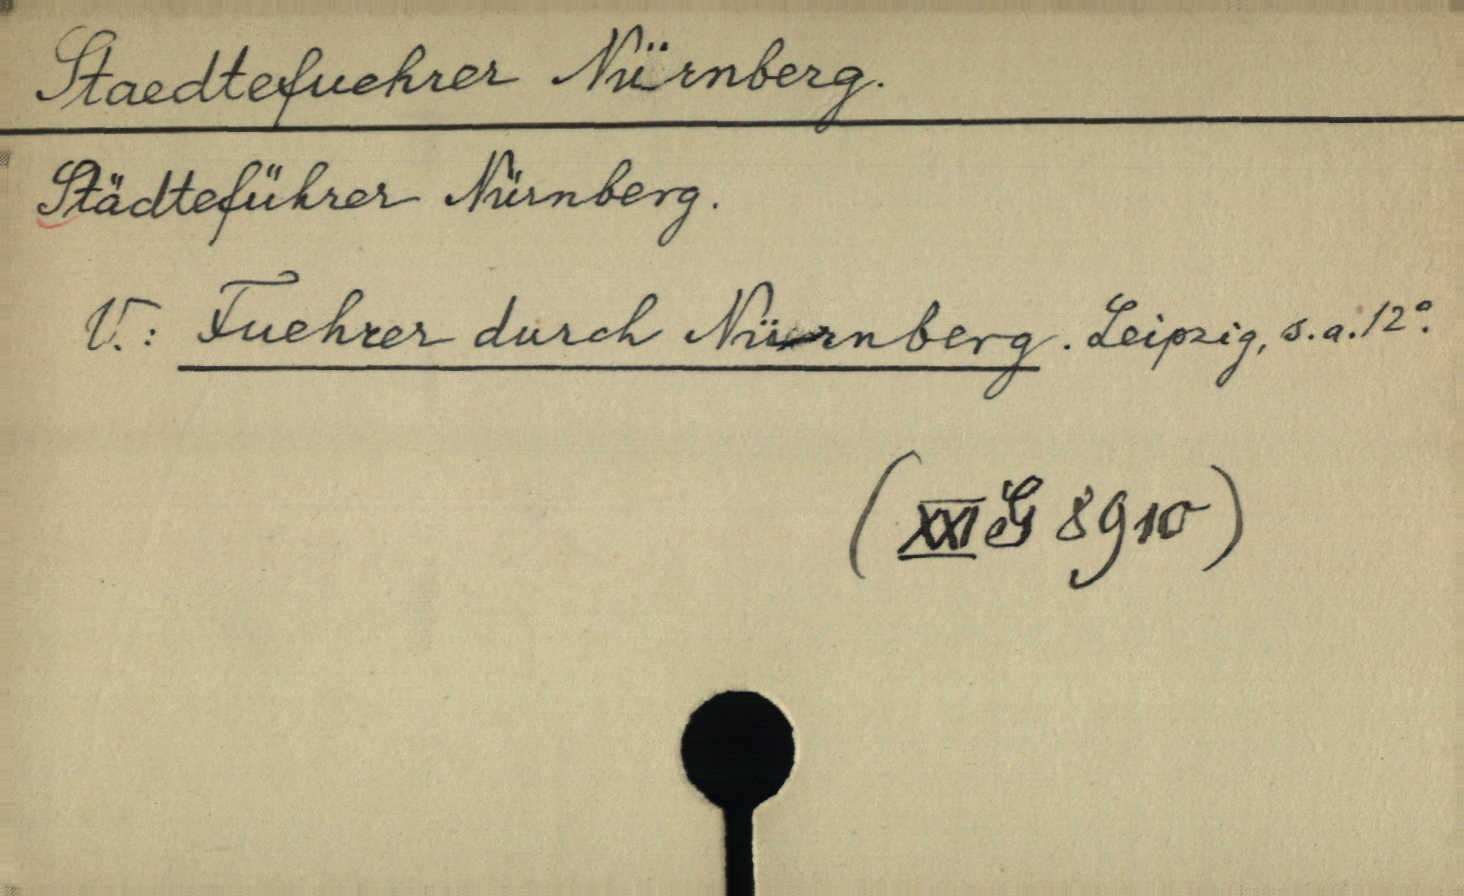 Staedtefuehrer Nürnberg.
Städteführer Nürnberg.
V.: Fuehrer durch Nürnberg. Leipzig, s.a. 12°.
(XXI G 8910)